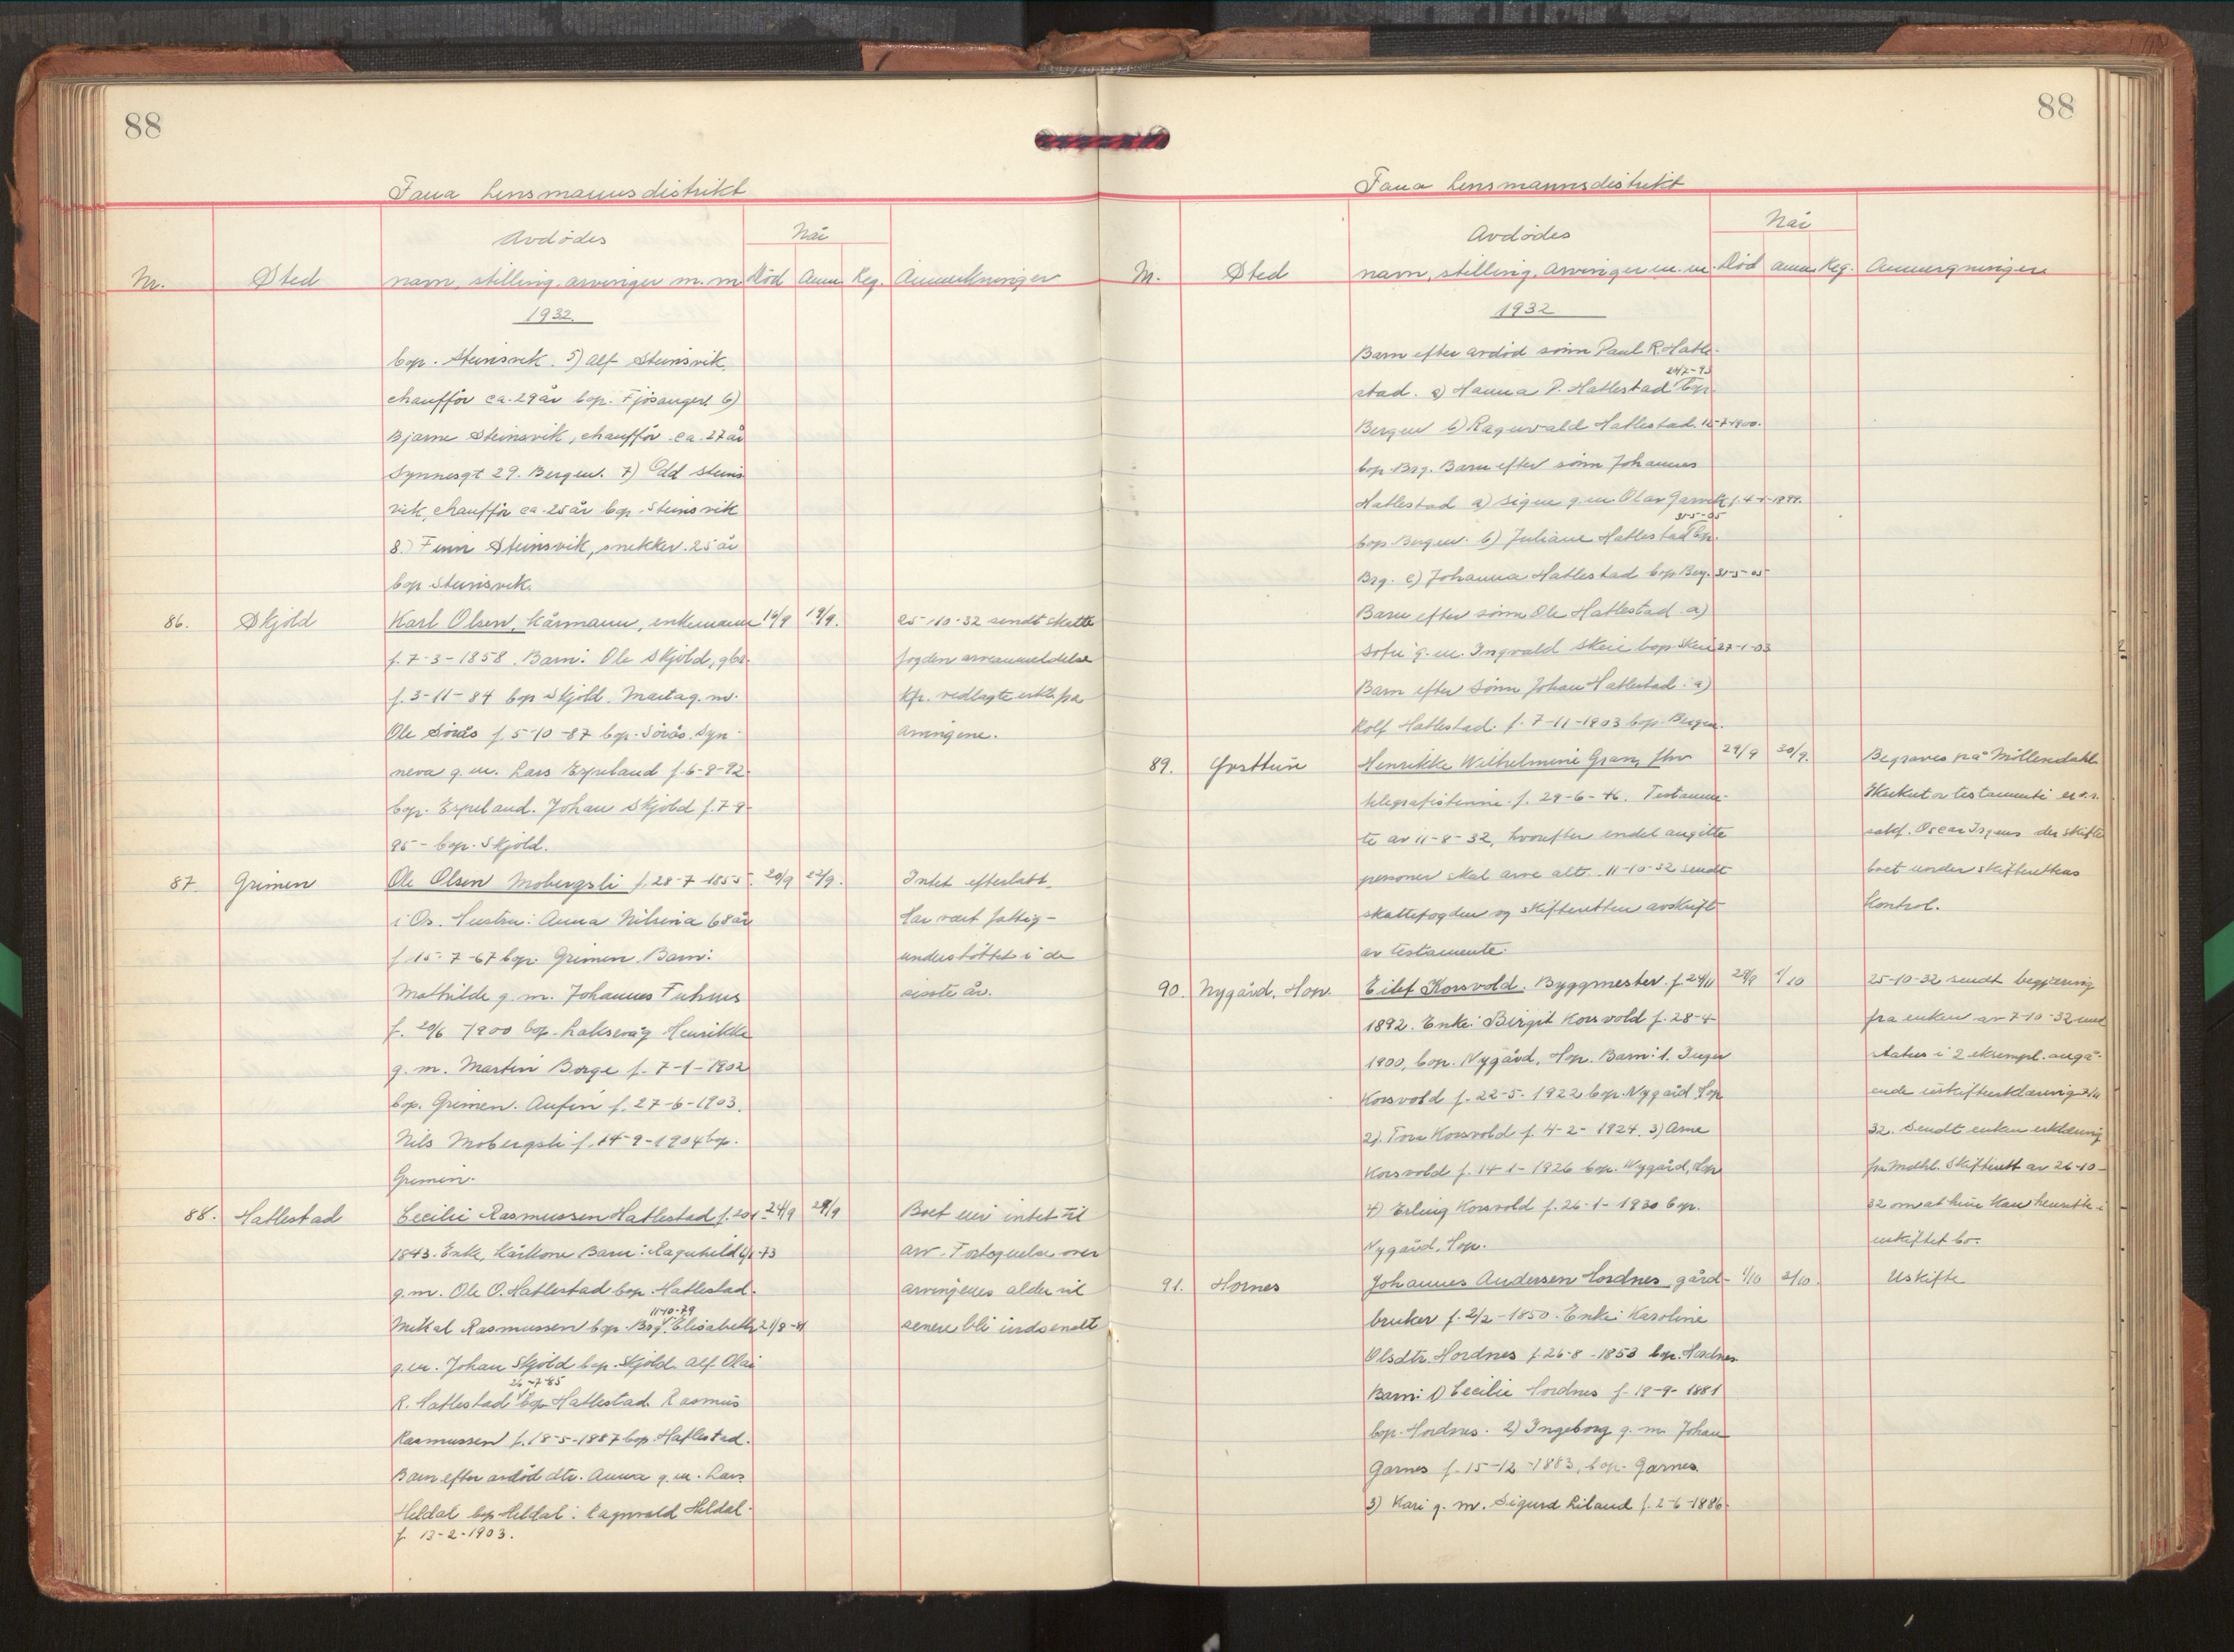 88
Fana Lensmannsdistrikt
Avdödes
Når
Nr. Sted navn, stilling, arvinger m. m Död Anm. Reg. Anmerkninger
1932.
bop. Steinsvik. 5) Alf Steinsvik,
chauffør ca. 29 år bop. Fjösanger 6)
Bjarne Steinsvik, chauffør ca. 27 år
Synnesgt 29. Bergen. 7) Odd Steins
vik, chauffør ca. 25 år bop. Steinsvik
8.) Finn Steinsvik, snekker. 25 år
bop Steinsvik.
86. Skjold Karl Olsen, kårmann, enkemann 14/9 19/9. 25-10-32 sendt skatte
f. 7-3-1858. Barn: Ole Skjold, gbr. fogden arveanmeldelse
f. 3-11-84 bop Skjold. Marta g. m. kfr. vedlagte erkl. fra
Ole Sörås f. 5-10-87 bop. Sörås. Syn- arvingene.
neva g. m. Lars Espeland f. 6-9-92.
bop. Espeland. Johan Skjold f. 7-9-
95- bop. Skjold.
87. Grimen Ole Olsen Mobergsli f. 28-7-1855. 20/9 22/9. Intet efterlatt.
i Os. Hustru: Anna Nilsina 68 år Har vært fattig-
f 15-7-67 bop. Grimen. Barn: understöttet i de
Mathilde g. m. Johannes siste år.
f. 20/6 1900 bop. Laksevåg Henrikke
g. m. Martin Borge f. 7-1-1902
bop. Grimen. Anfin f. 27-6-1903.
Nils Mobergsli f. 14-9-1904 bop.
Grimen.
88. Hatlestad Cecilie Rasmussen Hatlestad f. 20/1- 24/9 29/9 Boet eier intet til
1843. Enke, kårkone Barn: Ragnhild -73 arv. Fortegnelse over
g. m. Ole O. Hatlestad bop. Hatlestad. arvingenes alder vil
11-10-79
Mikal Rasmussen bop. Brg. Elisabeth 21/8-81 senere bli indsendt
g. m. Johan Skjold bop. Skjold. Alf Olai
26-7-85
R. Hatlestad bop Hatlestad. Rasmus
Rasmussen f. 18-5-1887 bop. Hatlestad.
Barn efter avdöd dtr. Anna g. m. Lars
Heldal bop Heldal: Ragnvald Heldal.
f. 13-2-1903.
88
Fana Lensmannsdistrikt
Avdödes
Når
Nr. Sted navn, stilling, arvinger m. m. Död anm. Reg. Anmerkninger
1932
Barn efter avdöd sönn Paul R. Hatle-
24/2-93
stad. a) Hanna P. Hatlestad bop.
Bergen b) Ragnvald Hatlestad. 12-7-1900.
bop. Brg. Barn efter sönn Johannes
Hatlestad a) Signe g. m. Olav Garvik f. -1899.
31-5-05
bop. Bergen. b) Juliane Hatlestad bop.
Brg. c) Johanna Hatlestad bop Brg. 31-5-05
Barn efter sönn Ole Hatlestad a)
Sofie g. m. Ingvald Skeie bop. Skeie 27-1-03
Barn efter Sönn Johan Hatlestad: a)
Rolf Hatlestad. f. 7-11-1903 bop. Bergen.
89. Hosttun Henrikke Wilhelmine Gran, fhv 29/9 30/9. Begraves på Möllendahl
telegrafistinne f. 29-6-46. Testamen- Eksekutor testamenti er o.r.
te av 11-8-32, hvorefter endel angitte sakf. Oscar der skifter
personer skal arve alt. 11-10-32 sendt boet under skifterettens
skattefogden og skifteretten avskrift kontrol.
av testamente.
90. Nygård, Hop. Eilef Korsvold. Byggmester f. 24/11 29/9 1/10 25-10-32 sendt begjæring
1892. Enke: Birgit Korsvold f. 28-4- fra enken av 7-10-32 med
1900, bop. Nygård, Hop. Barn: 1. Inger status i 2 eksempl. angå-
Korsvold f. 22-5-1922 bop. Nygård Hop ende uskifteerklæring
2). Tora Korsvold f. 4-2-1924. 3) Arne 32. Sendt enken erklæring
Korsvold f. 14-1-1926 bop. Nygård, Hop fra Mdhl. Skifterett av 26-10-
4) Erling Korsvold f. 26-1-1930 bop. 32 om at hun kan hensitte i
Nygård, Hop. uskiftet bo.
91. Hornes Johannes Andersen Hordnes gård- 1/10 3/10. Uskifte
bruker f. 2/2-1850. Enke: Karoline
Olsdtr. Hordnes f. 26-8-1853 bop. Hordnes
Barn: 1) Cecilie Hordnes f. 19-9-1881
bop. Hordnes. 2) Ingeborg g. m. Johan
Garnes f. 15-12-1883, bop. Garnes.
3) Kari g. m. Sigurd Liland f. 2-6-1886.